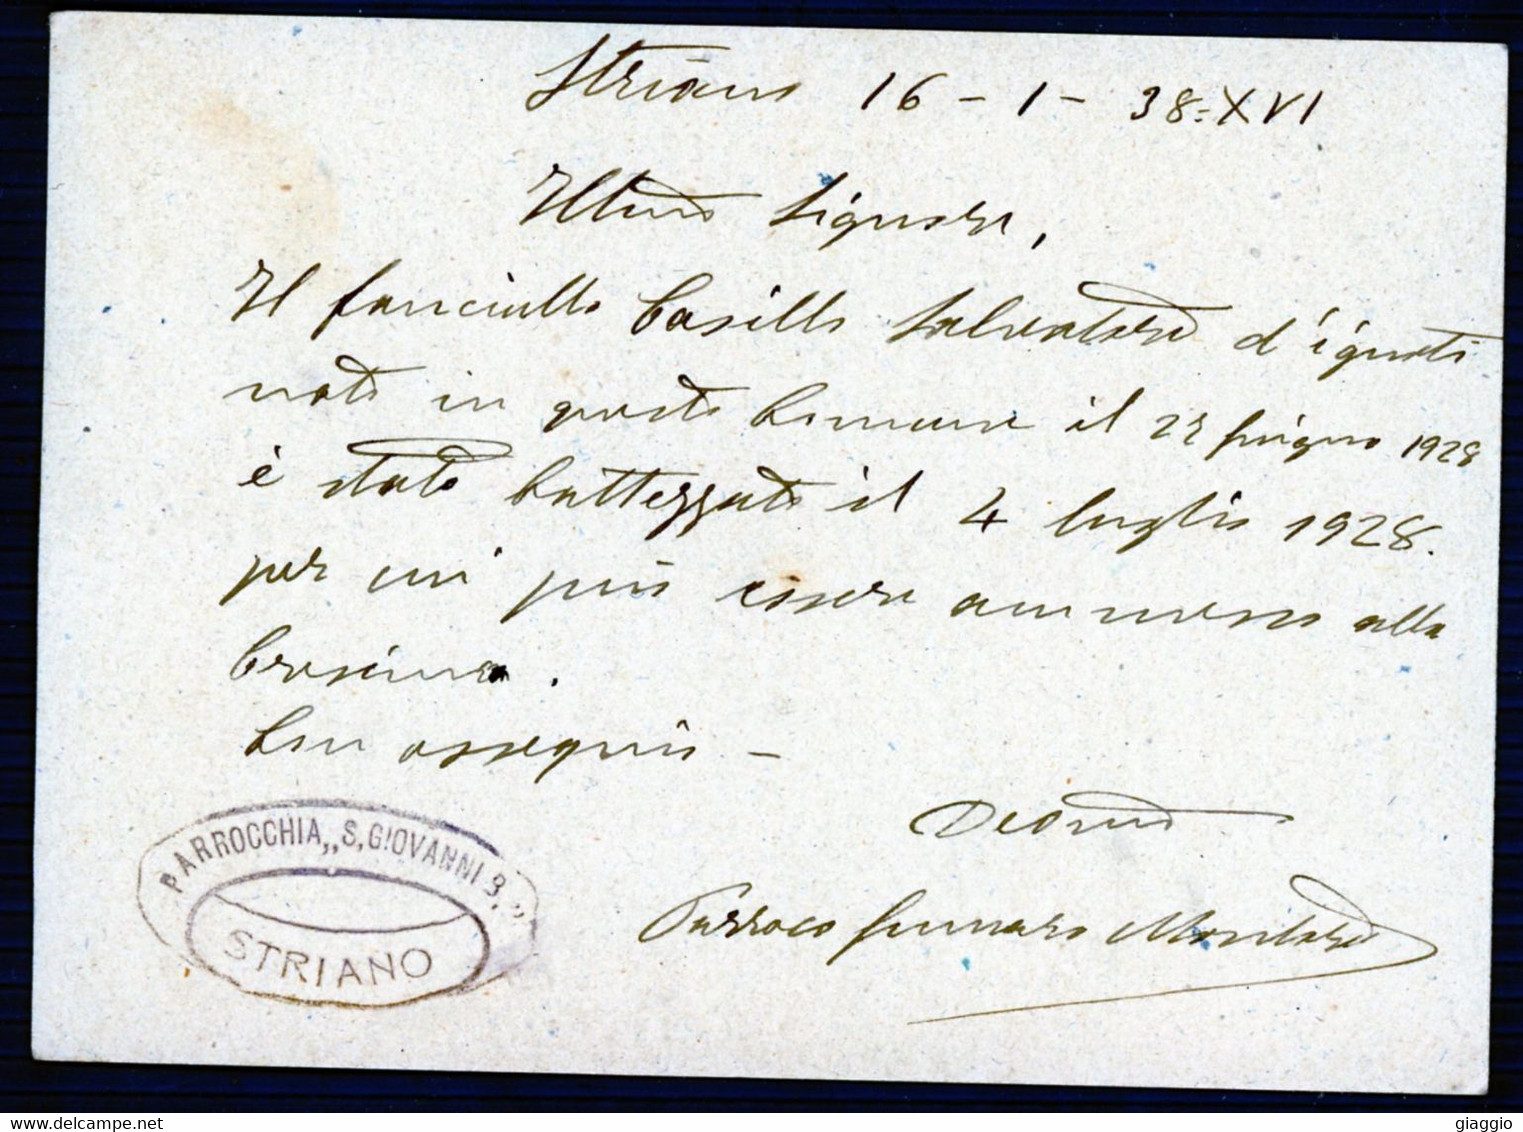 Striano 16-1-38=XVI
Ill.mo Signore,
Il fanciullo Casillo Salvatore d'ignoti
nato in questo Comune il 27 giugno 1928
è stato battezzato il 4 luglio 1928.
per cui può essere ammesso alla
Cresima.
Con ossequio –
Dev.mo
Parroco Gennaro
PARROCCHIA „S. GIOVANNI B.”
STRIANO
giaggio